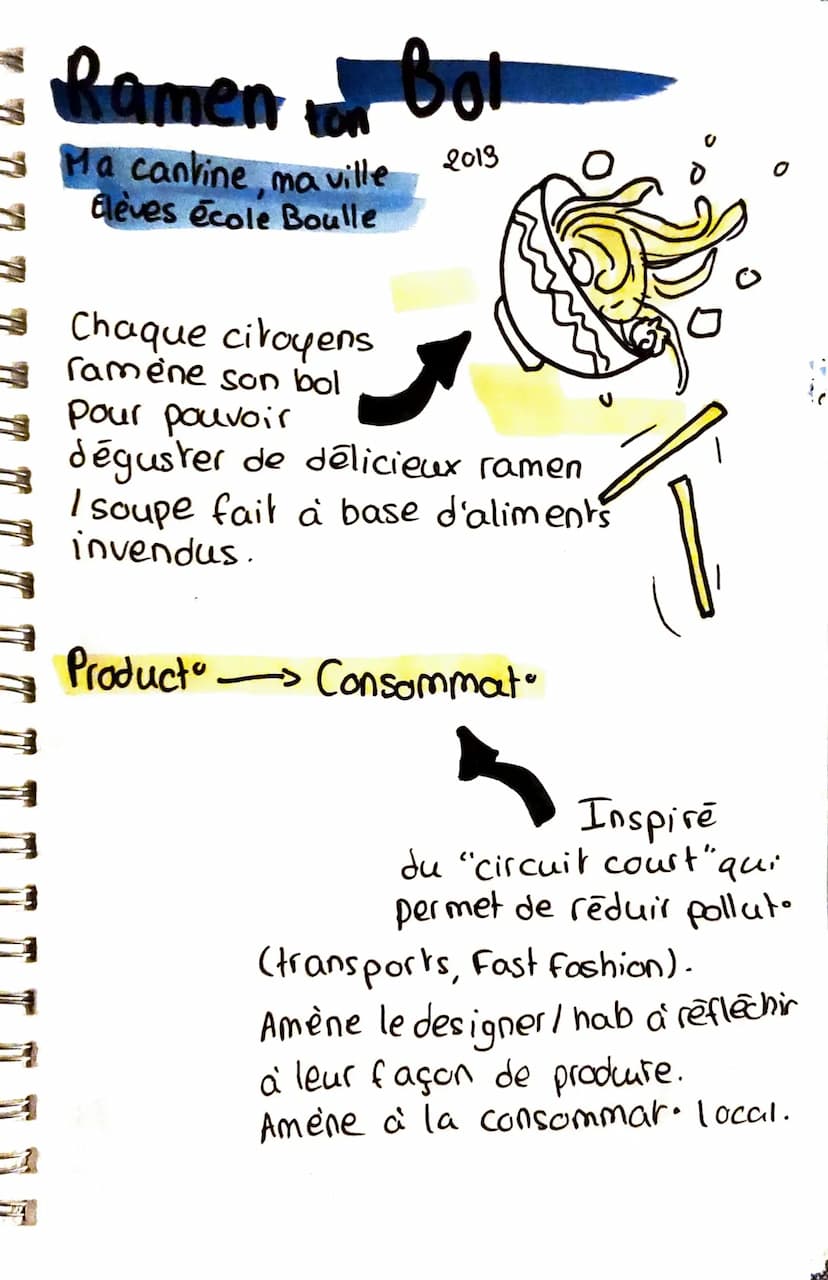 Ramen ton Bol
Ma cantine, ma ville
élèves école Boulle
2019
Chaque citoyens
ramène son bol
pour pouvoir
déguster de délicieux ramen
/ soupe fait à base d'aliments
invendus.
Product° → Consommat°
Inspiré
du "circuit court" qui
permet de réduir pollut°
(transports, Fast Fashion).
Amène le designer/hab à réfléchir
à leur façon de produire.
Amène à la consommat° local.